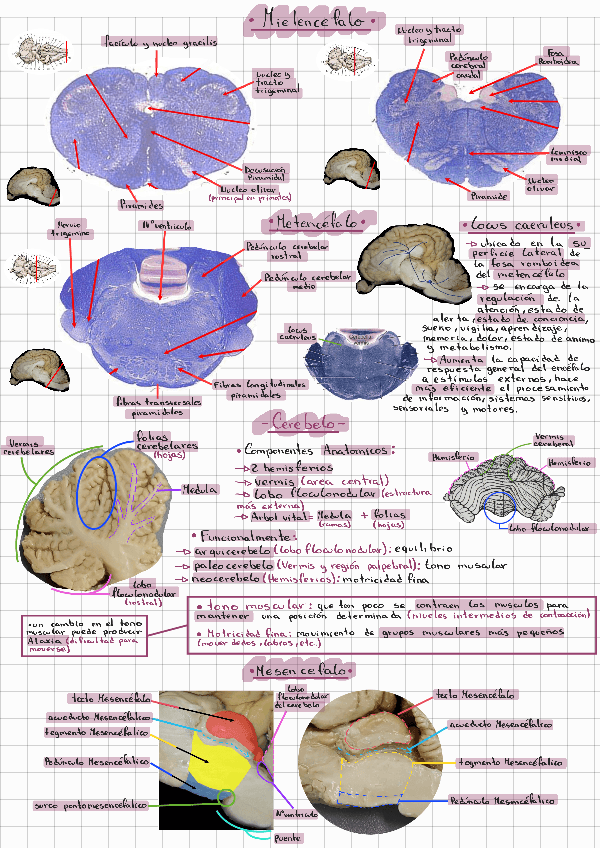 • Mielencéfalo •
fascículo y nucleo gracilis
Nucleo y
tracto
trigeminal
Decusación
Piramidal
Nucleo olivar
(principal en primates)
Piramides
Nucleo y tracto
trigeminal
Pedúnculo
cerebral
caudal
Fosa
Romboidea
Lemnisco
medial
Nucleo
olivar
Piramide
• Metencéfalo •
Nervio
trigemino
IV° ventriculo
Pedúnculo cerebelar
rostral
Pedúnculo cerebelar
medio
Fibras longitudinales
piramidales
Fibras transversales
piramidales
Locus
caeruleus
• Locus caeruleus •
→ ubicado en la su
perficie lateral de
la fosa romboidea
del metencéfalo
→ se encarga de la
regulación de la
atención, estado de
alerta, estado de conciencia,
sueño, vigilia, aprendizaje,
memoria, dolor, estado de animo
y metabolismo.
→ Aumenta la capacidad de
respuesta general del encéfalo
a estímulos externos, hace
más eficiente el procesamiento
de información, sistemas sensitivos,
sensoriales y motores.
- Cerebelo -
Vermis
cerebelares
folias
cerebelares
(hojas)
Médula
Lobo
floculonodular
(rostral)
• Componentes Anatomicos:
→ 2 hemisferios
→ vermis (area central)
→ Lobo floculonodular (estructura
más externa)
→ Arbol vital = Médula + folias
(ramas) (hojas)
• Funcionalmente:
→ arquicerebelo (Lobo floculonodular): equilibrio
→ paleocerebelo (Vermis y región palpebral): tono muscular
→ neocerebelo (Hemisferios): motricidad fina
Vermis
cerebral
Hemisferio
Hemisferio
Lobo floculonodular
• un cambio en el tono
muscular puede producir
Ataxia (dificultad para
moverse)
• tono muscular: que tan poco se contraen los musculos para
mantener una posición determinada (niveles intermedios de contracción)
• Motricidad fina: movimiento de grupos musculares más pequeños
(mover dedos, labios, etc.)
• Mesencefalo •
tecto Mesencéfalo
acueducto Mesencéfalico
tegmento Mesencéfalico
Pedúnculo Mesencéfalico
surco pontomesencéfalico
Lobo
floculonodular
del cerebelo
IV°ventriculo
Puente
tecto Mesencéfalo
acueducto Mesencéfalico
tegmento Mesencéfalico
Pedúnculo Mesencéfalico